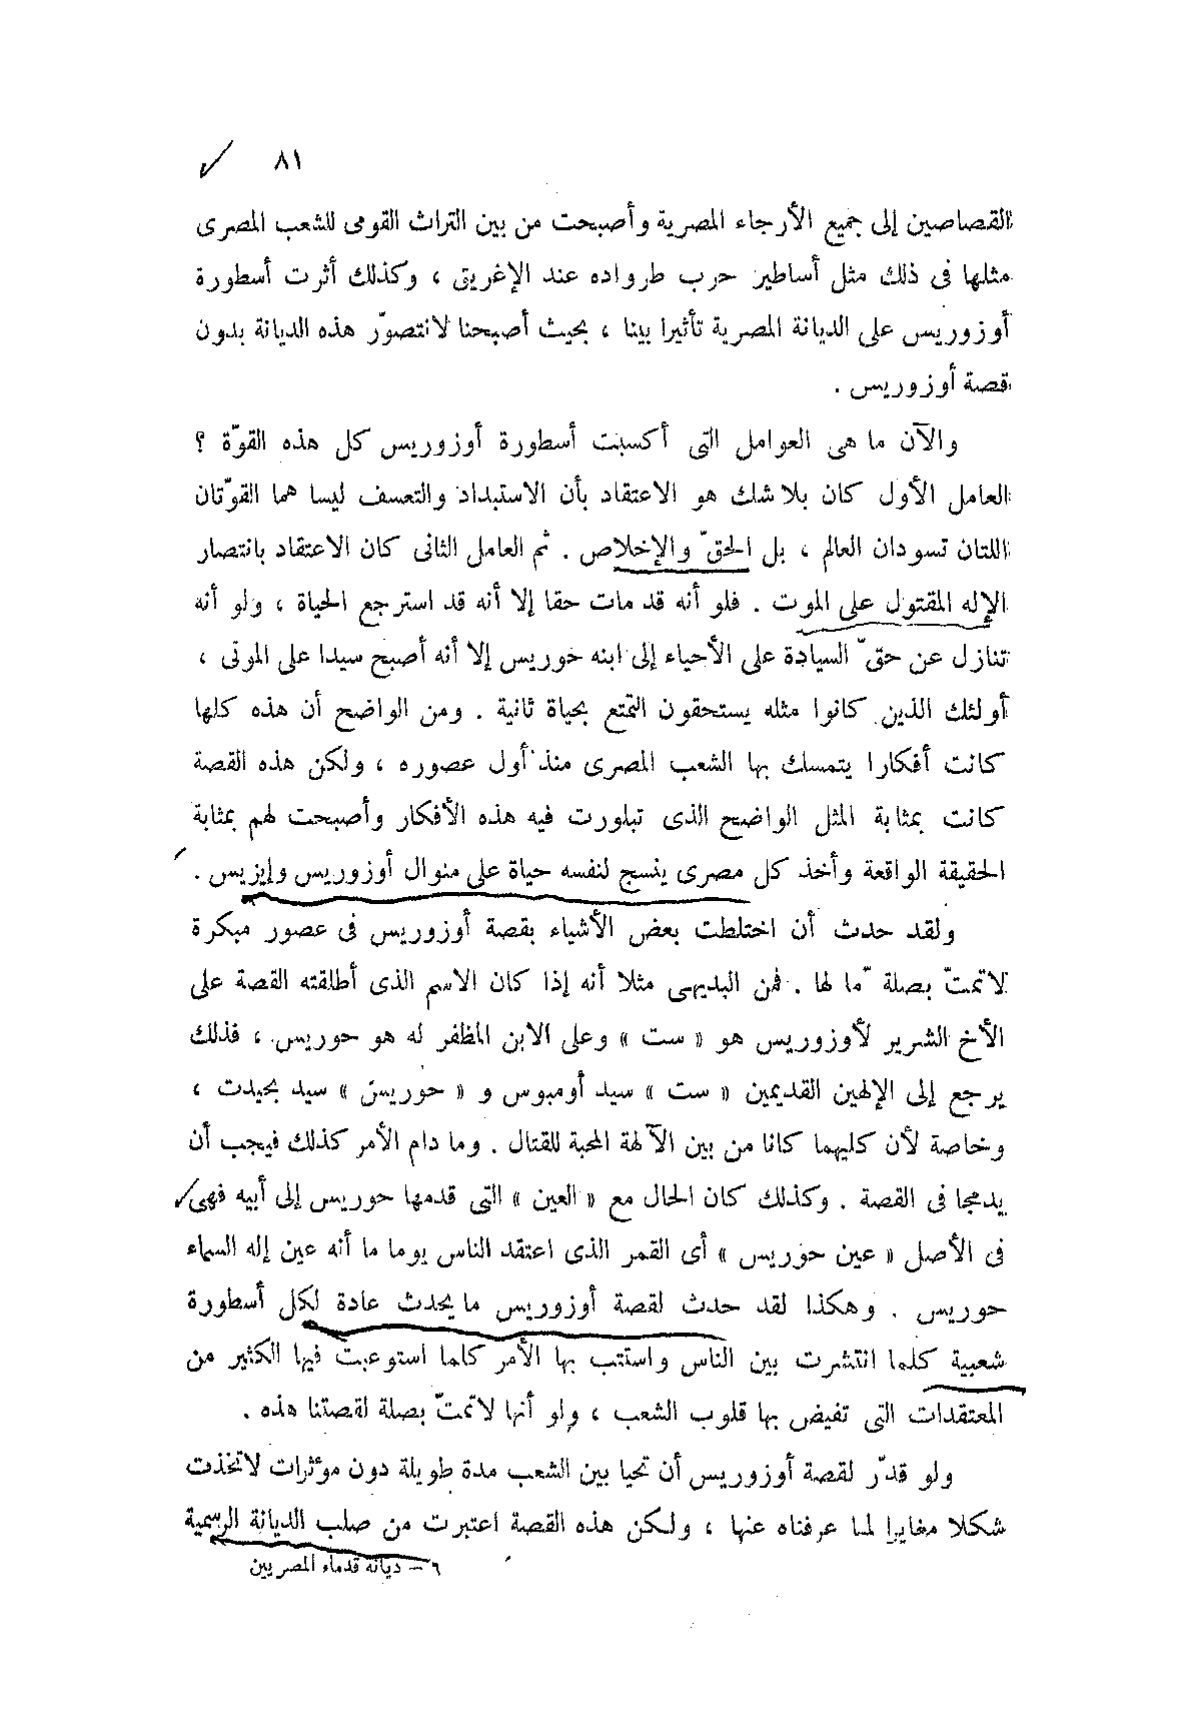 ٨١
القصاصين إلى جميع الأرجاء المصرية وأصبحت من بين التراث القومى للشعب المصرى
مثلها فى ذلك مثل أساطير حرب طرواده عند الإغريق ، وكذلك أثرت أسطورة
أوزوريس على الديانة المصرية تأثيرا بينا ، بحيث أصبحنا لانتصوّر هذه الديانة بدون
قصة أوزوريس .
والآن ما هى العوامل التى أكسبت أسطورة أوزوريس كل هذه القوّة ؟
العامل الأول كان بلا شك هو الاعتقاد بأن الاستبداد والتعسف ليسا هما القوّتان
اللتان تسودان العالم ، بل الحقّ والإخلاص . ثم العامل الثانى كان الاعتقاد بانتصار
الإله المقتول على الموت . فلو أنه قد مات حقا إلا أنه قد استرجع الحياة ، ولو أنه
تنازل عن حقّ السيادة على الأحياء إلى ابنه حوريس إلا أنه أصبح سيدا على الموتى ،
أولئك الذين كانوا مثله يستحقون التمتع بحياة ثانية . ومن الواضح أن هذه كلها
كانت أفكارا يتمسك بها الشعب المصرى منذ أول عصوره ، ولكن هذه القصة
كانت بمثابة المثل الواضح الذى تبلورت فيه هذه الأفكار وأصبحت لهم بمثابة
الحقيقة الواقعة وأخذ كل مصرى ينسج لنفسه حياة على منوال أوزوريس وإيزيس .
ولقد حدث أن اختلطت بعض الأشياء بقصة أوزوريس فى عصور مبكرة
لاتمتّ بصلة ّما لها . فمن البديهى مثلا أنه إذا كان الاسم الذى أطلقته القصة على
الأخ الشرير لأوزوريس هو « ست » وعلى الابن المظفر له هو حوريس ، فذلك
يرجع إلى الإلهين القديمين « ست » سيد أومبوس و « حوريس » سيد بحيدت ،
وخاصة لأن كليهما كانا من بين الآلهة المحبة للقتال . وما دام الأمر كذلك فيجب أن
يدمجا فى القصة . وكذلك كان الحال مع « العين » التى قدمها حوريس إلى أبيه فهى
فى الأصل « عين حوريس » أى القمر الذى اعتقد الناس يوما ما أنه عين إله السماء
حوريس . وهكذا لقد حدث لقصة أوزوريس ما يحدث عادة لكل أسطورة
شعبية كلما انتشرت بين الناس واستتب بها الأمر كلما استوعبت فيها الكثير من
المعتقدات التى تفيض بها قلوب الشعب ، ولو أنها لاتمتّ بصلة لقصتنا هذه .
ولو قدّر لقصة أوزوريس أن تحيا بين الشعب مدة طويلة دون مؤثرات لاتخذت
شكلا مغايرا لما عرفناه عنها ، ولكن هذه القصة اعتبرت من صلب الديانة الرسمية
٦ – ديانة قدماء المصريين